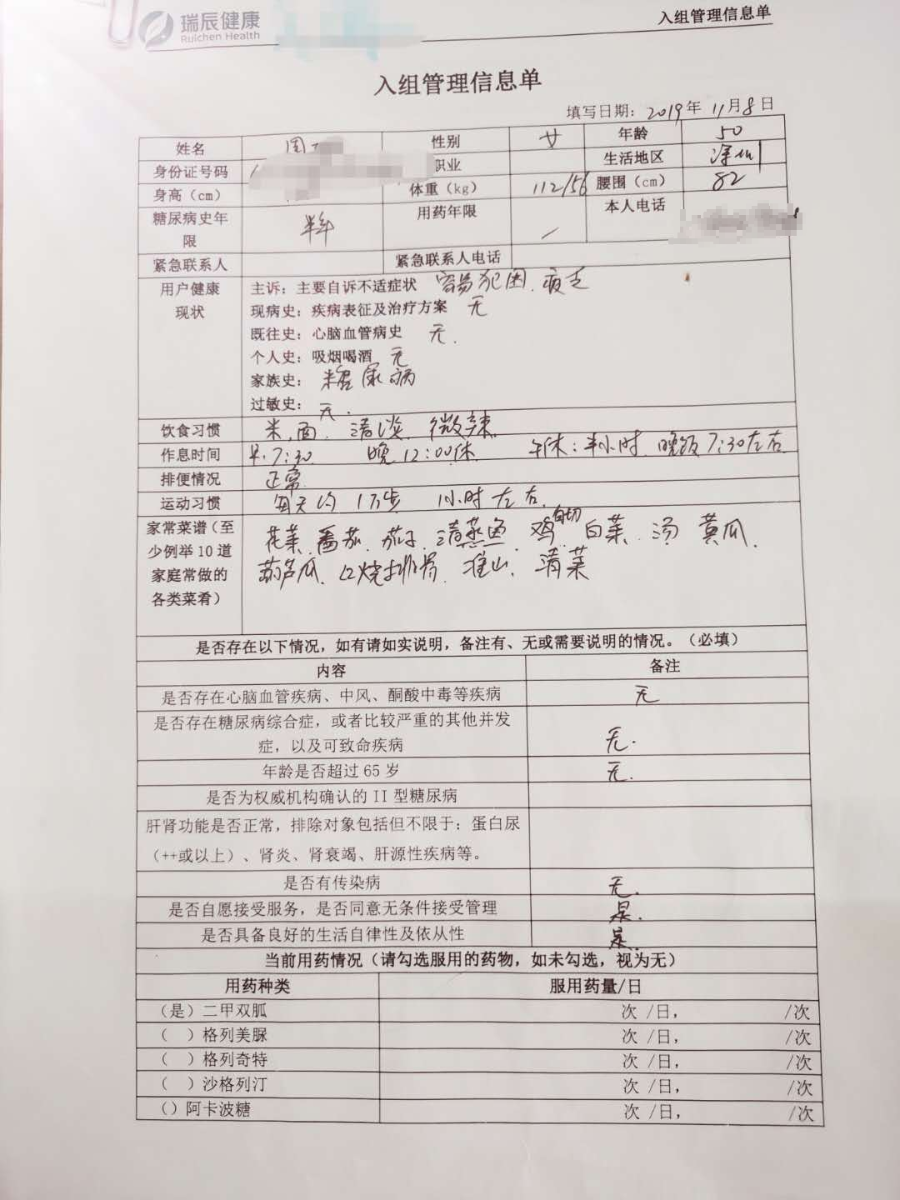 瑞辰健康
Ruichen Health
入组管理信息单
入组管理信息单
填写日期：2019年11月8日
姓名 周 性别 女 年龄 50
身份证号码 职业 生活地区 深圳
身高（cm） 体重（kg） 112/56 腰围（cm） 82
糖尿病史年限 半年 用药年限 / 本人电话
紧急联系人 紧急联系人电话
用户健康现状
主诉：主要自诉不适症状 容易犯困、疲乏
现病史：疾病表征及治疗方案 无
既往史：心脑血管病史 无.
个人史：吸烟喝酒 无
家族史： 糖尿病
过敏史： 无.
饮食习惯 米、面、清淡、微辣
作息时间 早.7:30 晚12:00休 午休：半小时、晚饭7:30左右
排便情况 正常
运动习惯 每天约1万步 1小时左右.
家常菜谱（至少例举10道家庭常做的各类菜肴）
花菜、番茄、茄子、清蒸鱼、白切鸡、白菜、汤、黄瓜、
葫芦瓜、红烧排骨、淮山、清菜
是否存在以下情况，如有请如实说明，备注有、无或需要说明的情况。（必填）
内容 备注
是否存在心脑血管疾病、中风、酮酸中毒等疾病 无
是否存在糖尿病综合症，或者比较严重的其他并发
症，以及可致命疾病 无.
年龄是否超过65岁 无.
是否为权威机构确认的II型糖尿病
肝肾功能是否正常，排除对象包括但不限于：蛋白尿
（++或以上）、肾炎、肾衰竭、肝源性疾病等。
是否有传染病 无.
是否自愿接受服务，是否同意无条件接受管理 是.
是否具备良好的生活自律性及依从性 是.
当前用药情况（请勾选服用的药物，如未勾选，视为无）
用药种类 服用药量/日
（是）二甲双胍 次 /日， /次
（ ）格列美脲 次 /日， /次
（ ）格列奇特 次 /日， /次
（ ）沙格列汀 次 /日， /次
（）阿卡波糖 次 /日， /次